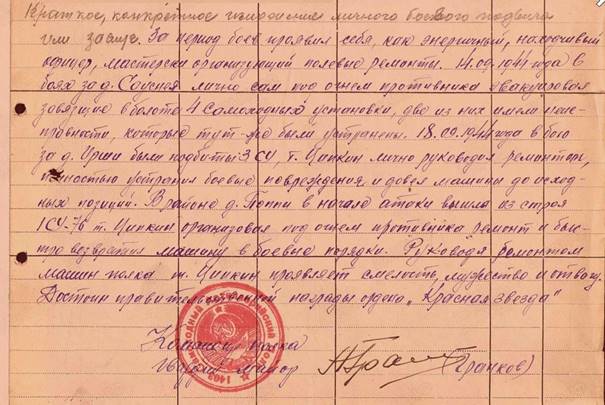 Краткое, конкретное изложение личного боевого подвига
или заслуг. За период боев проявил себя, как энергичный, находчивый
офицер, мастерски организующий полевые ремонты. 14.09.1944 года в
боях за д. лично сам под огнем противника эвакуировал
завязшие в болоте 4 самоходных установки, две из них имели неис-
правности, которые тут-же были устранены. 18.09.1944 года в бою
за д. Ирши были подбиты 3 СУ, т. Ципкин лично руководя ремонтом,
полностью устранил боевые повреждения и довел машины до исход-
ных позиций. В районе д. Поппи в начале атаки вышла из строя
1 СУ-76 т. Ципкин организовал под огнем противника ремонт и быс-
тро возвратил машину в боевые порядки. Руководя ремонтом
машин полка т. Ципкин проявляет смелость, мужество и отвагу.
Достоин правительственной награды ордена „Красная звезда"
Командир полка
Гвардии майор (Гранков)